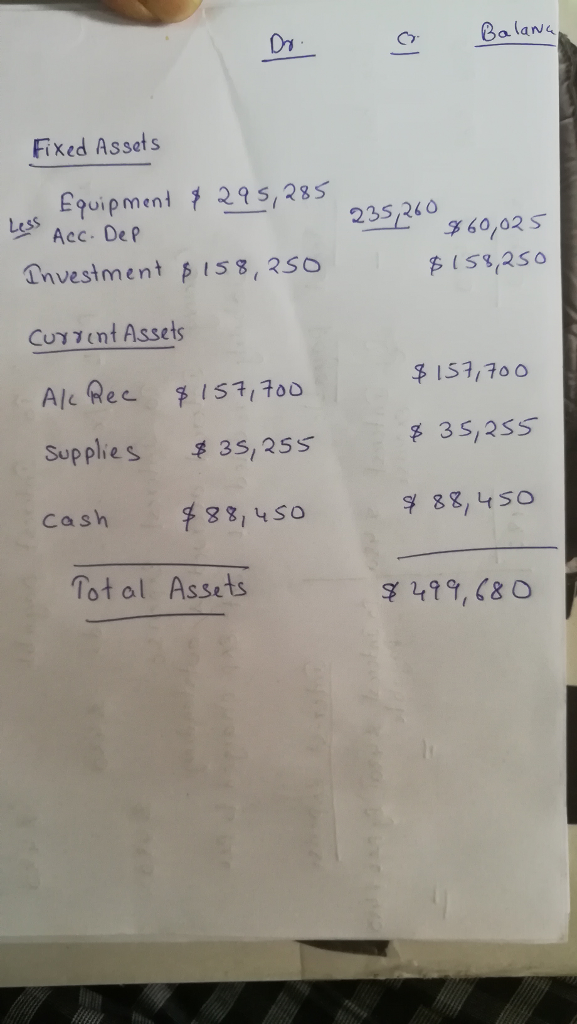 Dr. Cr. Balance
Fixed Assets
Equipment $ 295,285
Less Acc. Dep 235,260 $60,025
Investment $158,250 $158,250
Current Assets
A/c Rec $157,700 $157,700
Supplies $35,255 $35,255
Cash $88,450 $88,450
Total Assets $499,680